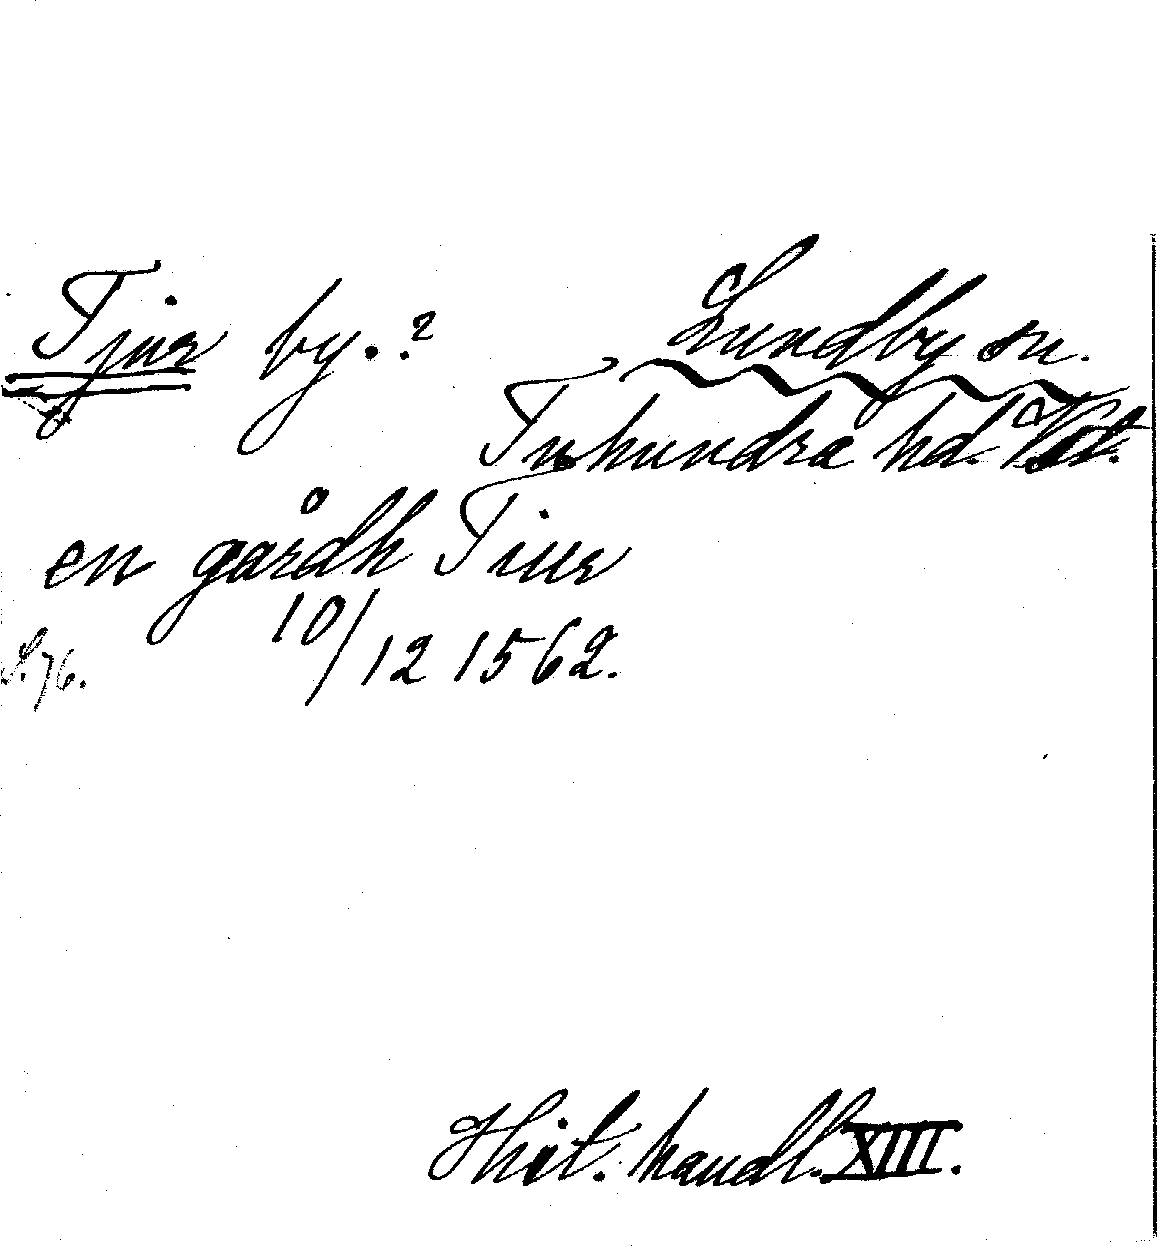 Tjur by.?
Lundby sn.
Tuhundra hd. Vst.
en gårdh Tiur
10/12 1562.
S. 76.
Hist. handl. XIII.